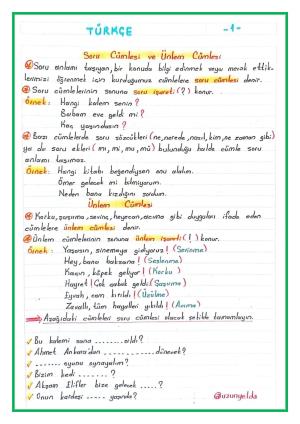 TÜRKÇE
-1-
Soru Cümlesi ve Ünlem Cümlesi
Soru anlamı taşıyan, bir konuda bilgi edinmek veya merak ettik-
lerimizi öğrenmek için kurduğumuz cümlelere soru cümlesi denir.
Soru cümlelerinin sonuna soru işareti (?) konur.
Örnek: Hangi kalem senin?
Babam eve geldi mi?
Kaç yaşındasın?
Bazı cümlelerde soru sözcükleri (ne, nerede, nasıl, kim, ne zaman gibi)
ya da soru ekleri (mı, mi, mu, mü) bulunduğu halde cümle soru
anlamı taşımaz.
Örnek: Hangi kitabı beğendiysen onu alalım.
Ömer gelecek mi bilmiyorum.
Neden bana kızdığını sordum.
Ünlem Cümlesi
Korku, şaşırma, sevinç, heyecan, acıma gibi duyguları ifade eden
cümlelere ünlem cümlesi denir.
Ünlem cümlelerinin sonuna ünlem işareti (!) konur.
Örnek: Yaşasın, sinemaya gidiyoruz! (Sevinme)
Hey, bana baksana! (Seslenme)
Kaçın, köpek geliyor! (Korku)
Hayret! Çok çabuk geldi. (Şaşırma)
Eyvah, cam kırıldı! (Üzülme)
Zavallı, tüm hayalleri yıkıldı! (Acıma)
Aşağıdaki cümleleri soru cümlesi olacak şekilde tamamlayın.
✓ Bu kalemi sana ......... aldı?
✓ Ahmet Ankara'dan ............. dönecek?
✓ ............... veriyorsun?
✓ Bizim kedi ..... ?
✓ Akşam Elifler bize gelecek ..... ?
✓ Onun kardeşi ..... yaşında?
@uzunyelda